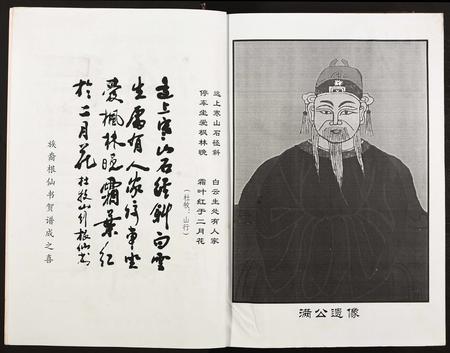 远上寒山石径斜 白云生处有人家
停车坐爱枫林晚 霜叶红于二月花
(杜牧：山行)
远上寒山石径斜白雲
生處有人家停車坐
爱楓林晚霜葉红
於二月花 杜牧山行根仙书
族裔根仙书贺谱成之喜
滿公遺像